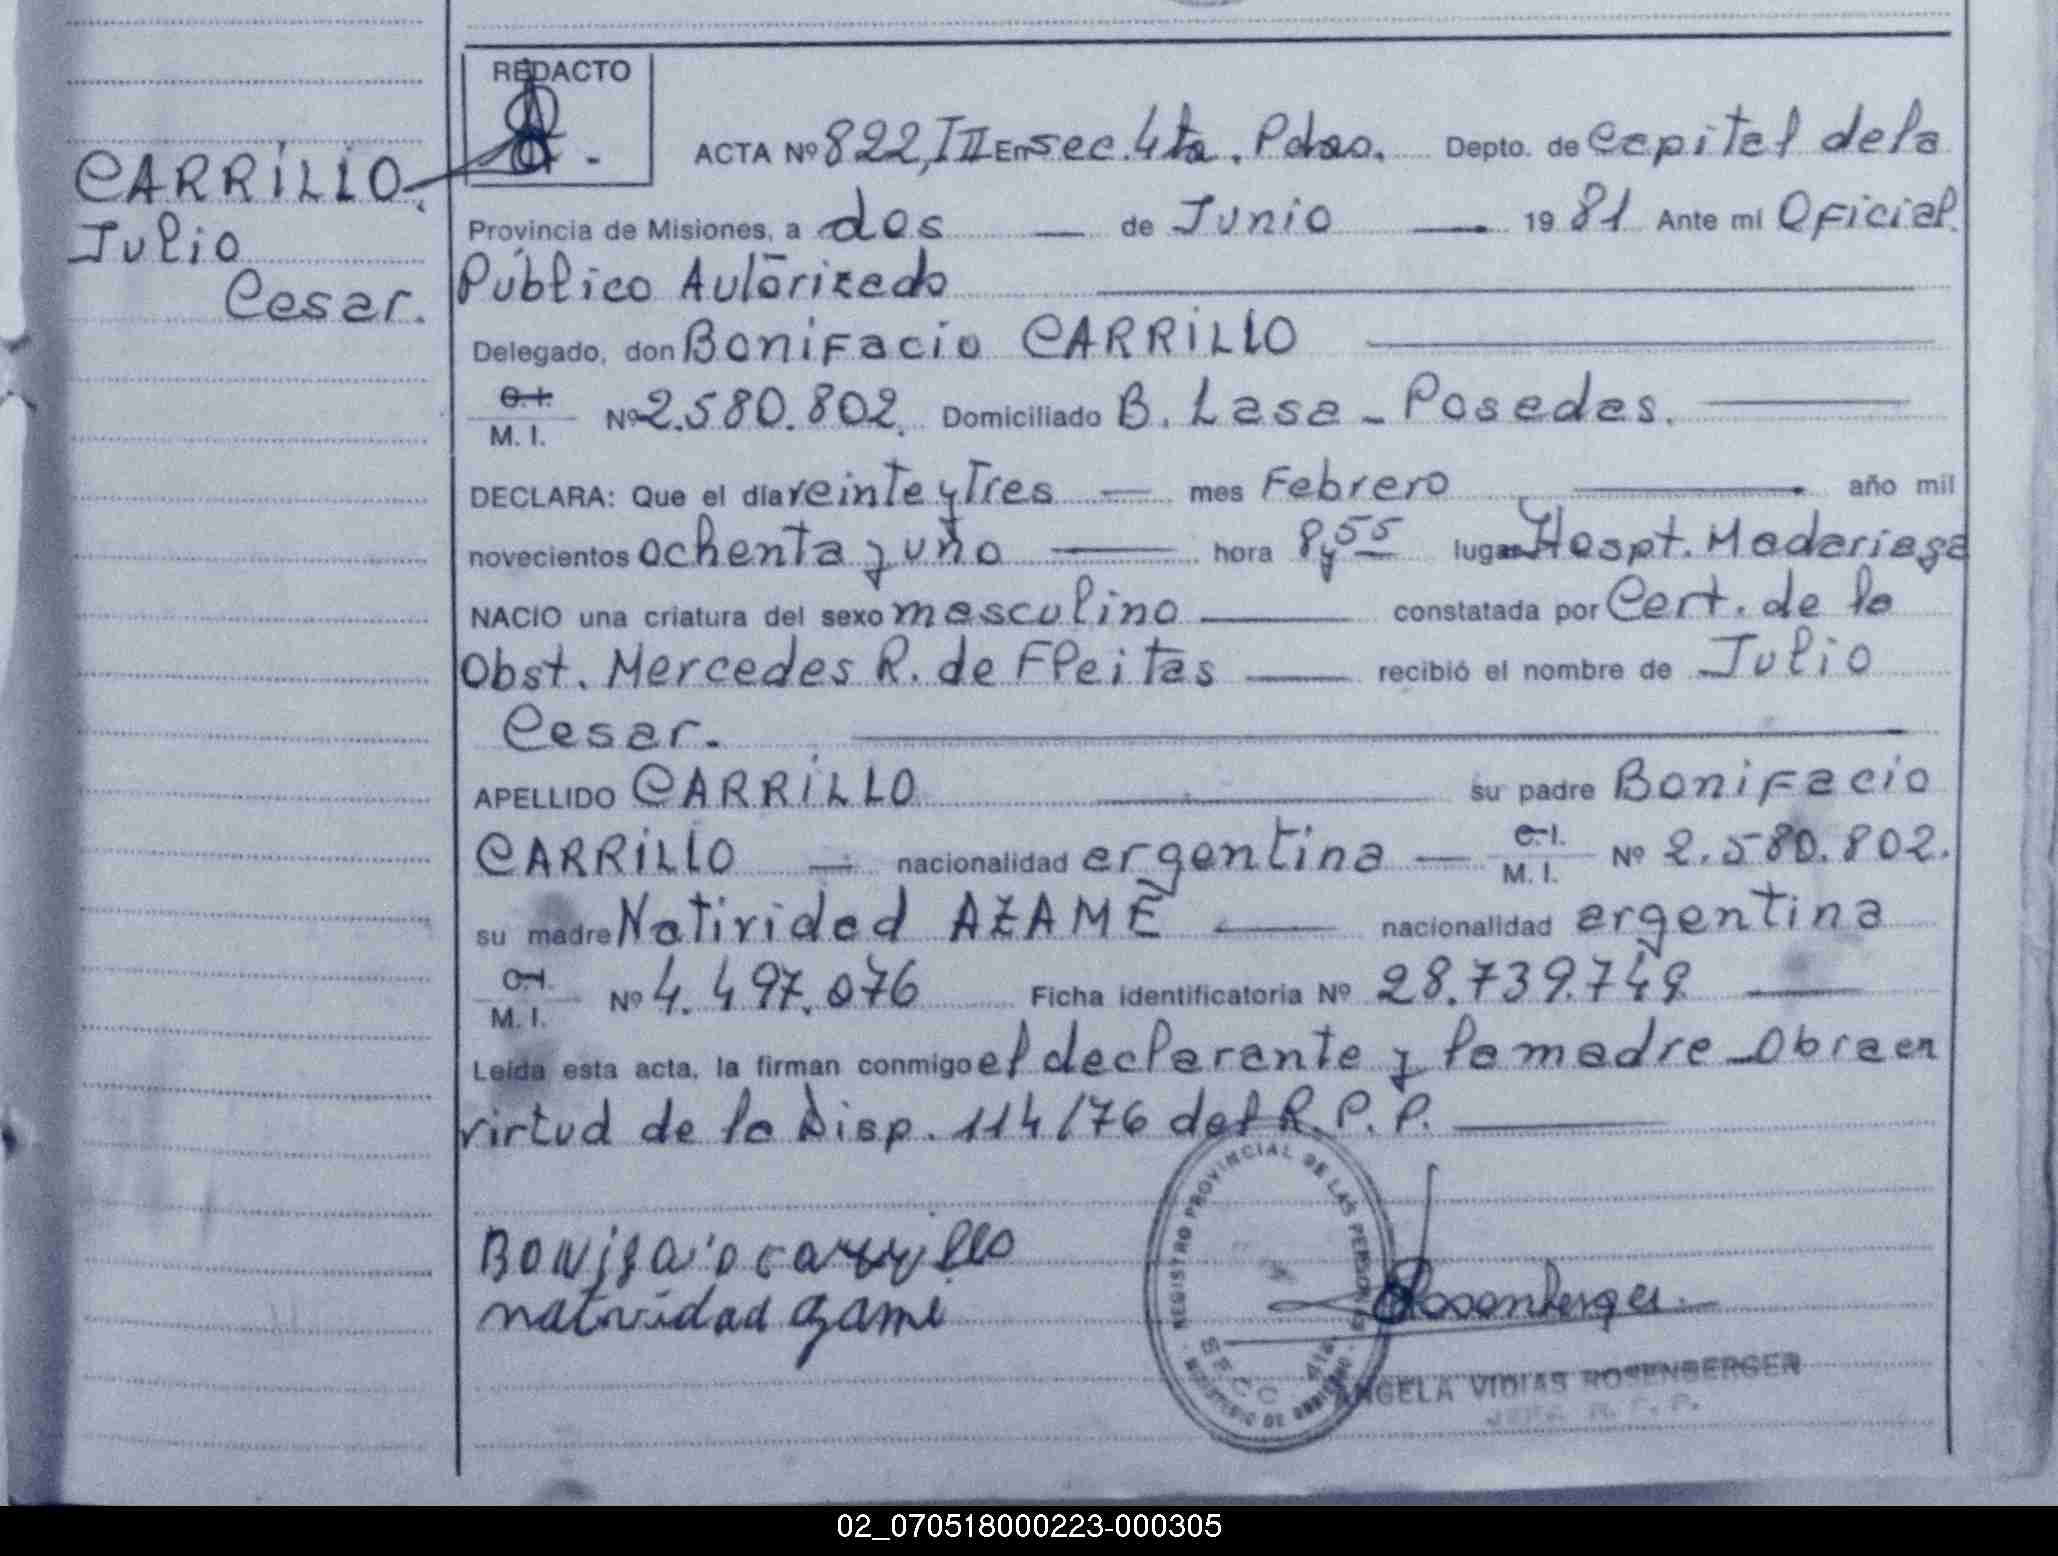 REDACTO
CARRILLO.
Julio
Cesar.
ACTA Nº 822, III En sec. 4ta. Pdas. Depto. de Capital de la
Provincia de Misiones, a dos — de Junio — 1981 Ante mi Oficial
Público Autorizado
Delegado, don Bonifacio CARRILLO
C. I.
M. I. Nº 2.580.802. Domiciliado B. Lasa - Posadas.
DECLARA: Que el día veinte y Tres — mes Febrero — año mil
novecientos ochenta y uno — hora 8 y 55 lugar Hospt. Madariaga
NACIO una criatura del sexo masculino — constatada por Cert. de la
Obst. Mercedes R. de Fleitas — recibió el nombre de Julio
Cesar.
APELLIDO CARRILLO — su padre Bonifacio
CARRILLO — nacionalidad argentina — C. I. M. I. Nº 2.580.802.
su madre Natividad AZAME — nacionalidad argentina
C. I.
M. I. Nº 4.497.076 Ficha identificatoria Nº 28.739.749
Leída esta acta, la firman conmigo el declarante y la madre - Obra en
virtud de la Disp. 114/76 del R. P. P.
Bonifacio carrillo
natividad azame
REGISTRO PROVINCIAL DE LAS PERSONAS
SECC. 4ta.
MINISTERIO DE GOBIERNO
Rosenberger
ANGELA VIDIAS ROSENBERGER
02_070518000223-000305